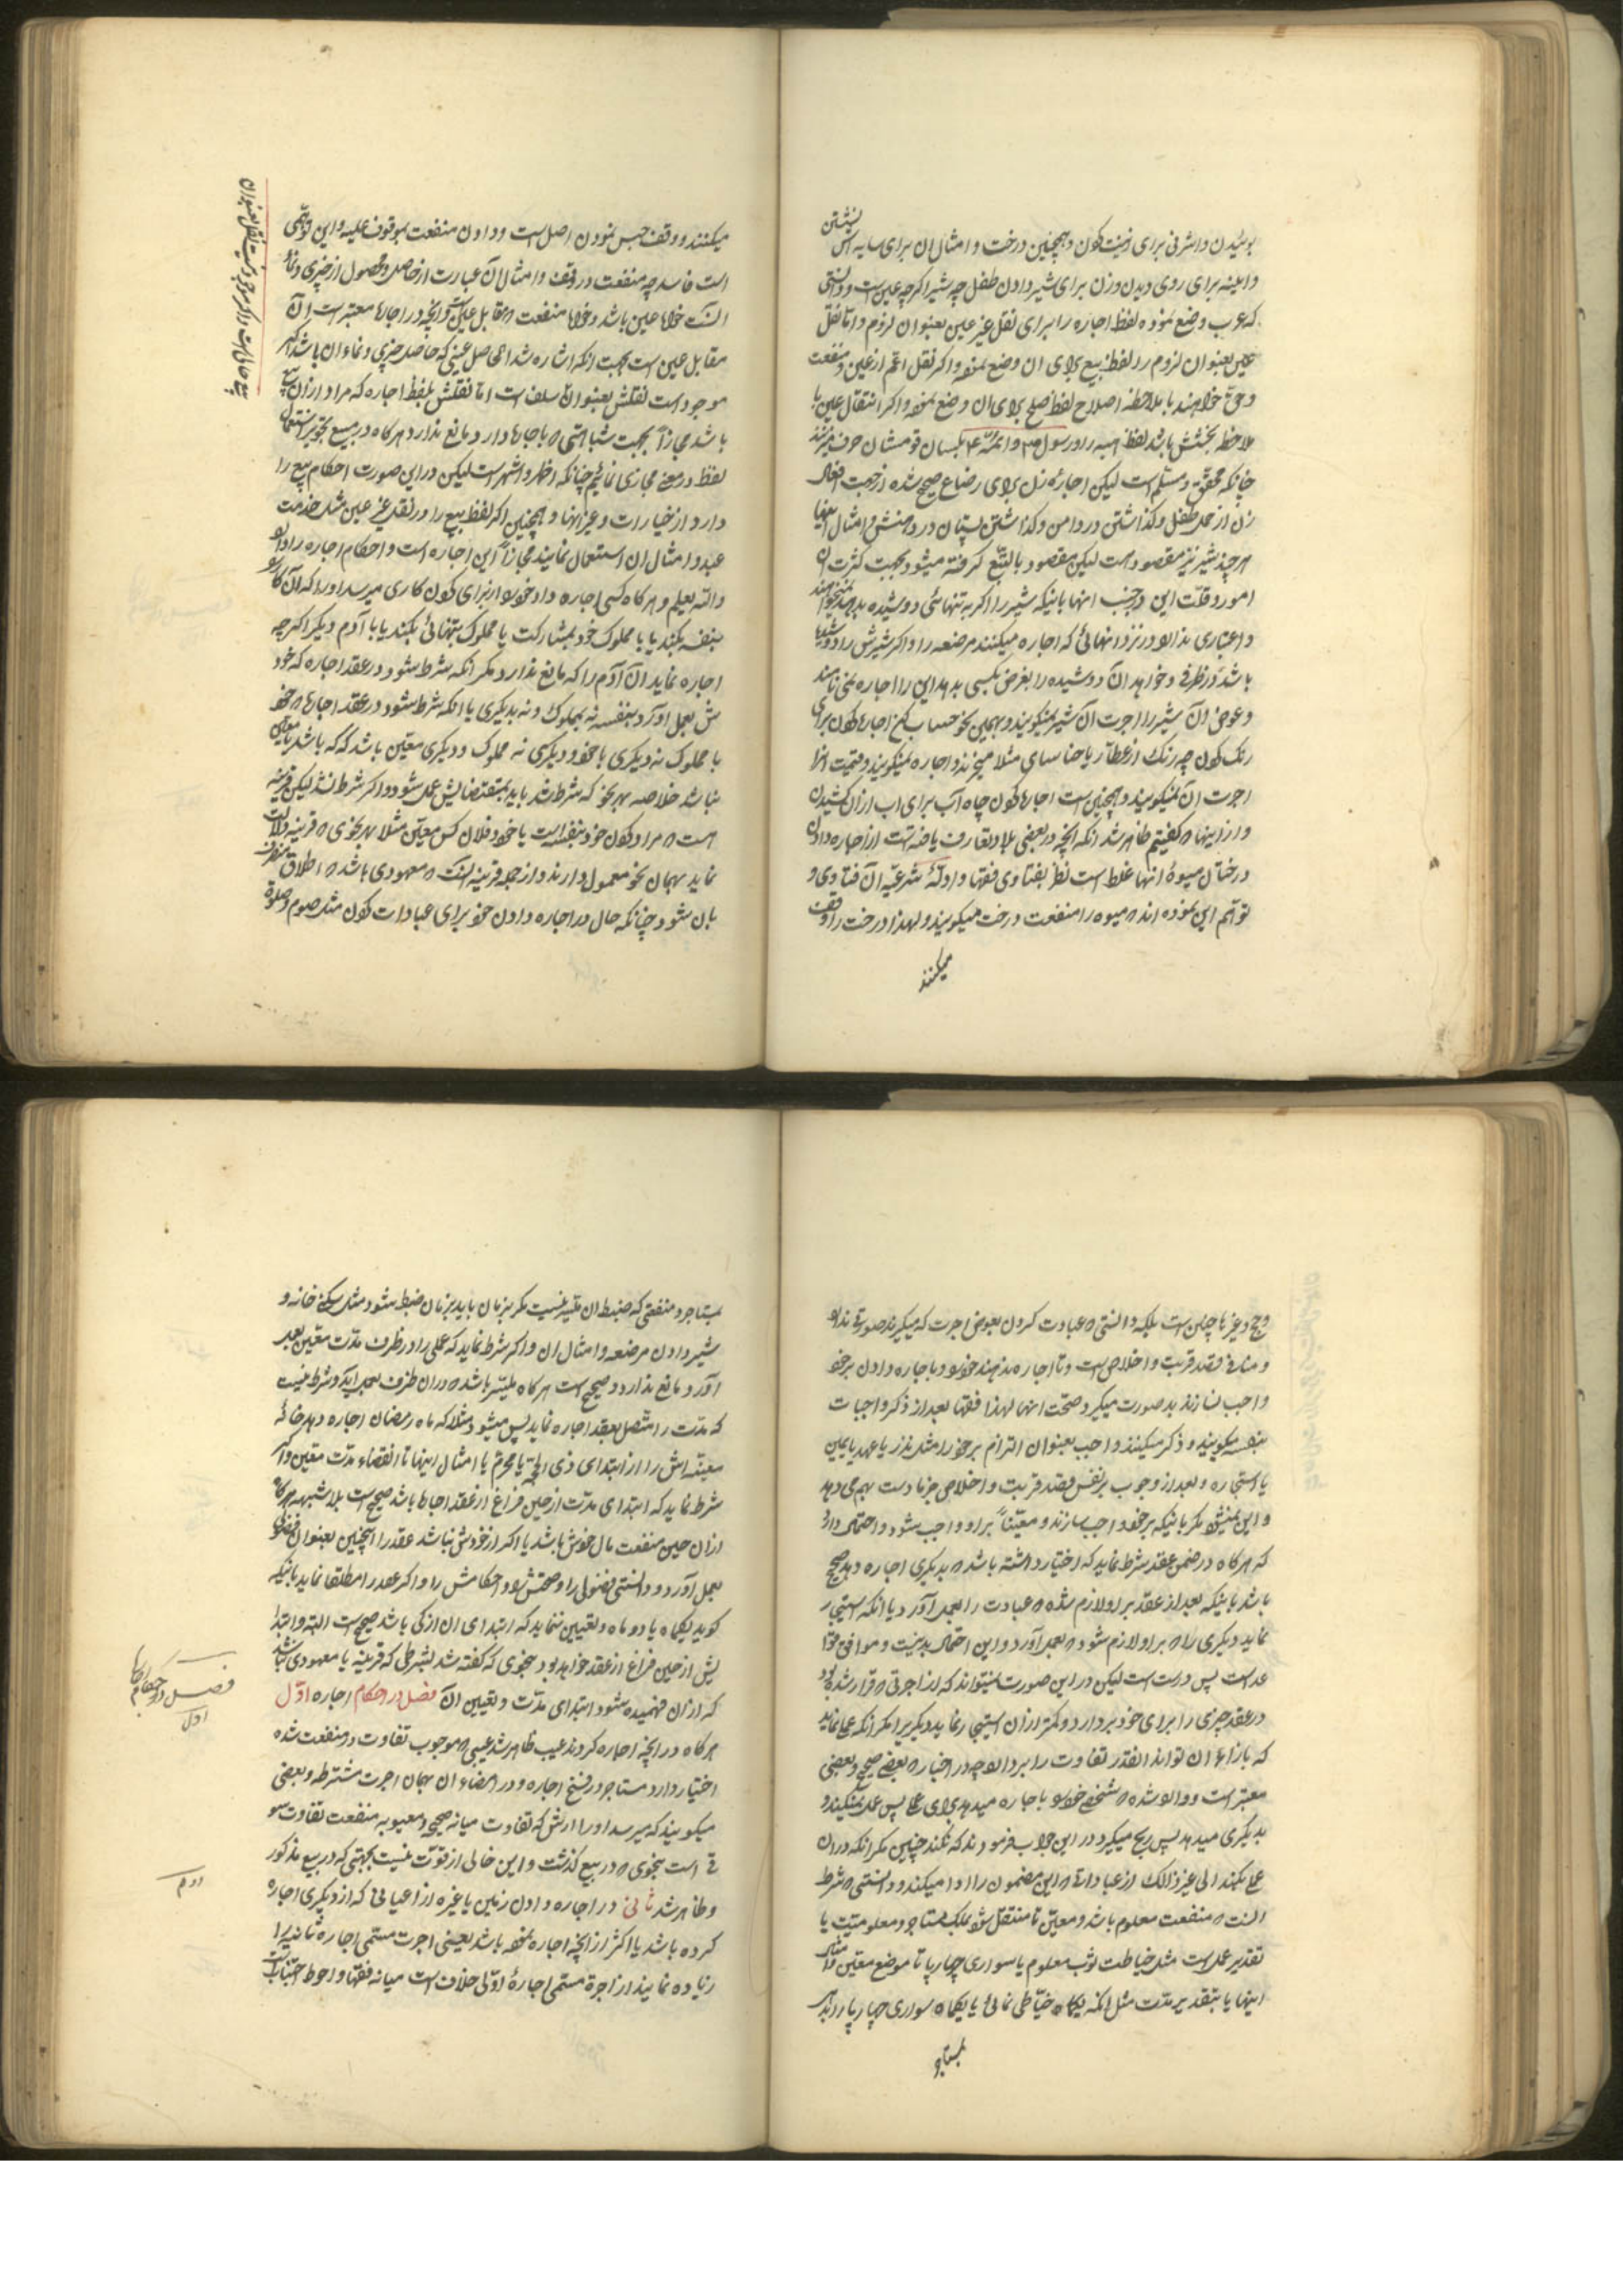 بوئیدن و اشرفی برای زینت کردن و همچنین درخت و امثال ان برای سایه اش نشستن
و اینه برای روی دیدن و زن برای شیر دادن طفل چه شیر اگر چه عین است و دانستی
که عرب وضع نموده لفظ اجاره را برای نقل غیر عین بعنوان لزوم و اما نقل
عین بعنوان لزوم را لفظ بیع برای ان وضع نموده و اگر نقل اعم از عین و منفعت
و حق خواهند با ملاحظه اصلاح لفظ صلح برای ان وضع نموده و اگر انتقال عین با
ملاحظه بخشش باشد لفظ هبه را و رسول ص و ائمه ع بلسان قومشان حرف میزنند
چنانکه محقق و مسلم است لیکن اجاره زن برای رضاع صحیح شده از جهت افعال
زن از حمل طفل و گذاشتن در دامن و گذاشتن پستان در دهنش و امثال اینها
هر چند شیر نیز مقصود است لیکن مقصود بالتبع گرفته میشود بجهت کثرت ان
امور و قلت این در جنب انها باینکه شیر را اگر به تنهائی دوشیده بدهد نمیخواهند
و اعتباری ندارد در نزد انهائی که اجاره میکنند مرضعه را و اگر شیرش را دوشیده
باشد در ظرفی و خواهد ان دوشیده را بعوض بکسی بدهد این را اجاره نمی نامند
و عوض ان شیر را اجرت ان شیر نمیگویند و بهمین نحو حساب کن اجاره کردن برای
رنگ کردن چه رنگ از عطار یا حنا سای مثلا میخرند و اجاره نمیگویند و قیمت انرا
اجرت ان نمیگویند و همچنین است اجاره کردن چاه آب برای اب از ان کشیدن
و از اینها که گفتیم ظاهر شد انکه انچه در بعضی بلاد تعارف یافته است از اجاره دادن
درختان میوه انها غلط است نظر بفتاوی فقها و ادله شرعیه ان فتاوی و
توهم این نموده اند که میوه را منفعت درخت میگویند و لهذا درخت را وقف
میکنند
میکنند و وقف حبس نمودن اصل است و دادن منفعت بموقوف علیه و این توهمی
است فاسد چه منفعت در وقف و امثال ان عبارت از حاصل و محصول از چیزی و نماء
انست خواه عین باشد و خواه منفعت که مقابل عین است و انچه در اجاره معتبر است ان
مقابل عین است بجهت انکه اشاره شد اما حاصل عینی که حاصل چیزی و نماء ان باشد اگر
موجود است نقلش بعنوان سلف است اما نقلش بلفظ اجاره که مراد از ان بیع
باشد مجازا بجهت شباهتی که باجاره دارد مانع ندارد هر گاه در بیع تجویز استعمال
لفظ در معنی مجازی نمائیم چنانکه اظهر و اشهر است لیکن در این صورت احکام بیع را
دارد از خیارات و غیر انها و همچنین اگر لفظ بیع را در نقل غیر عین مثل خدمت
عبد و امثال ان استعمال نمایند مجازا این اجاره است و احکام اجاره را دارد
والله یعلم و هر گاه کسی اجاره داد خود را برای کردن کاری میرسد او را که آن کار
بنفسه بکند یا با مملوک خود بمشارکت یا مملوک بتنهائی بکند یا با آدم دیگر اگر چه
اجاره نماید ان آدم را که مانع ندارد مگر انکه شرط شود در عقد اجاره که خود
ش بعمل اورد بنفسه نه بمملوک و نه بدیگری یا انکه شرط شود در عقد اجاره که خود
با مملوک نه دیگری یا خود و دیگری نه مملوک و دیگری معین باشد که که باشد یا معین
نباشد خلاصه بهر نحو که شرط شد باید بمقتضایش عمل شود و اگر شرط نشد لیکن قرینه
هست که مراد کردن خود بنفسه است یا خود و فلان کس معین مثلا بهر نحوی که قرینه دلالت
نماید بهمان نحو معمول دارند و از جمله قرینه انست که معهودی باشد که اطلاق منصرف
بان شود چنانکه حال در اجاره دادن خود برای عبادات کردن مثل صوم و صلوة
بیع حال است و اگر موجود نیست نقل بعنوان
و حج و غیرها چنین است بلکه دانستی که عبادت کردن بعوض اجرت که میگیرند صورتی ندارد
و منافی قصد قربت و اخلاص است و تا اجاره ندهند خود را و باجاره دادن بر خود
واجب نسازند بد صورت میگیرد صحت انها لهذا فقها بعد از ذکر واجبات
بنفسه میگویند و ذکر میکنند واجب بعنوان التزام بر خود را مثل نذر یا عهد یا یمین
یا استیجاره و بعد از وجوب بر نفس قصد قربت و اخلاص جزما دست بهم می دهد
و این نمیشود مگر باینکه بر خود واجب سازند و معینا بر او واجب شود و احتمال دارد
که هر گاه در ضمن عقد شرط نماید که اختیار داشته باشد که بدیگری اجاره دهد صحیح
باشد باینکه بعد از عقد بر او لازم شده که عبادت را بعمل آورد یا انکه استیجار
نماید دیگری را که بر او لازم شود که بعمل آورد و این احتمال بد نیست و موافق قواعد
عد است پس درست است لیکن در این صورت نمیتواند که از اجرتی که قرار شده بود
در عقد چیزی را برای خود بردارد و کمتر از ان استیجار نماید دیگری را مگر انکه عملی نماید
که بازاء ان تواند القدر تفاوت را بردارد چه در اخباری که بعضی صحیح و بعضی
معتبر است وارد شده که شخصی خود را باجاره میدهد برای عملی پس عمل نمیکند و
بدیگری میدهد پس ربح میگیرد در این جواب فرمودند که نکند چنین مگر انکه در ان
عملی بکند الی غیر ذالک از عباداتی که این مضمون را ادا میکند و دانستی که شرط
انست که منفعت معلوم باشد و معین تا منتقل شود بملک مستاجر و معلومیت یا
تقدیر عمل است مثل خیاطت ثوب معلوم یا سواری چهارپا تا موضع معین و امثال
اینها یا بتقدیر مدت مثل انکه یکماه خیاطی نمائی یا یکماه سواری چهارپا را بدهد
بمستاجر
بمستاجر و منفعتی که ضبط ان متیسر نیست مگر بزمان باید بزمان ضبط شود مثل سکنی خانه و
شیر دادن مرضعه و امثال ان و اگر شرط نماید که عملی را در ظرف مدت معین بعمل
آورد مانع ندارد و صحیح است هر گاه میسر باشد که در ان ظرف بعمل اید و شرط نیست
که مدت را متصل بعقد اجاره نماید پس میشود مثلا که ماه رمضان اجاره دهد خانه
معینه اش را از ابتدای ذی الحجه یا محرم یا امثال اینها تا انقضاء مدت معین و اگر
شرط نماید که ابتدای مدت از حین فراغ از عقد اجاره باشد صحیح است بلا شبهه هر گاه
در ان حین منفعت مال خودش باشد یا اگر از خودش نباشد عقد را همچنین بعنوان فضولی
بعمل آورد و دانستی فضولی را و صحتش را و احکامش را و اگر عقد را مطلقا نماید باینکه
گوید یکماه یا دو ماه و تعیین ننماید که ابتدای ان از کی باشد صحیح است البته و ابتدا
یش از حین فراغ از عقد خواهد بود بنحوی که گفته شد بشرطی که قرینه یا معهودی نباشد
که از ان فهمیده شود ابتدای مدت و تعیین ان فصل در احکام اجاره اول
هر گاه در انچه اجاره کردند عیب ظاهر شد عیبی که موجب تفاوت در منفعت شده
اختیار دارد مستاجر در فسخ اجاره و در امضاء ان بهمان اجرت مشترطه و بعضی
میگویند که میرسد او را ارش که تفاوت میانه صحیح و معیوبه منفعت تفاوت سو
قی است بنحوی که در بیع گذشت و این خالی از قوت نیست بجهتی که در بیع مذکور
و ظاهر شد ثانی در اجاره دادن زمین یا غیره از اعیانی که از دیگری اجاره
کرده باشد یا اکثر از انچه اجاره نموده باشد یعنی اجرت مسمی اجاره ثانیه را
زیاده نمایند از اجرة مسمی اجاره اولی خلاف است میانه فقها و احوط اجتناب
فصل در احکام اجاره
اول
دوم